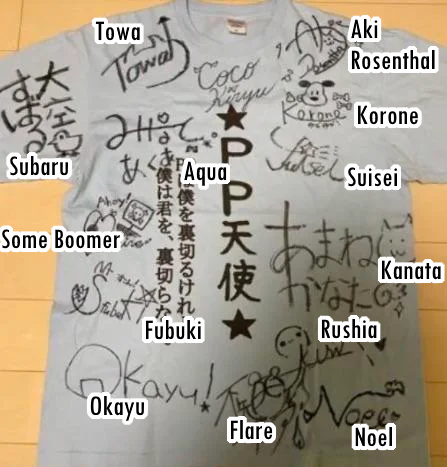 Towa
Aki
Rosenthal
Towa
Aki
Rosenthal
Coco
Kiryu
大空
すばる
Korone
Korone
Subaru
みなと
あくあ
Aqua
★PP天使★
Suisei
Suisei
僕を裏切るけれど
僕は君を、裏切らない
Ahoy!
Some Boomer
あまね
かなた
Kanata
Fubuki
Rushia
Okayu!
Okayu
Flare
Noel
Noel